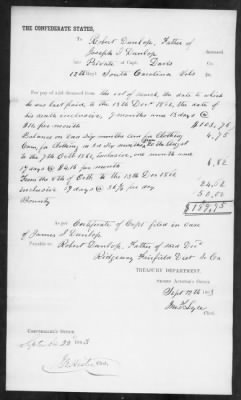 THE CONFEDERATE STATES,
To Robert Dunlop, Father of
Joseph S. Dunlop deceased
late Private of Capt Davis Co.
12th Regt South Carolina Vols
For pay due said deceased from the 1st of March, the date to which
he was last paid, to the 13th Decr 1862, the date of
his death inclusive, 9 months and 13 days @
$11 per month $103,76
Balance on Six months Com for Clothing 4,75
Com for Clothing on
to the 7th Octr 1862, inclusive, one month and
17 days @ per month 6,82
From the 8th of Octr to the 13th Dec 1862
inclusive days @ per day 24,12
Bounty 50,00
$189,75
As per Certificate of Capt filed in case
of James S Dunlop.
Payable to Robert Dunlop, Father of said Decd
Ridgeway Fairfield Dist So Ca
TREASURY DEPARTMENT.
SECOND AUDITOR'S OFFICE
Sept 19th 1863
Clerk.
COMPTROLLER'S OFFICE
Sept 1863